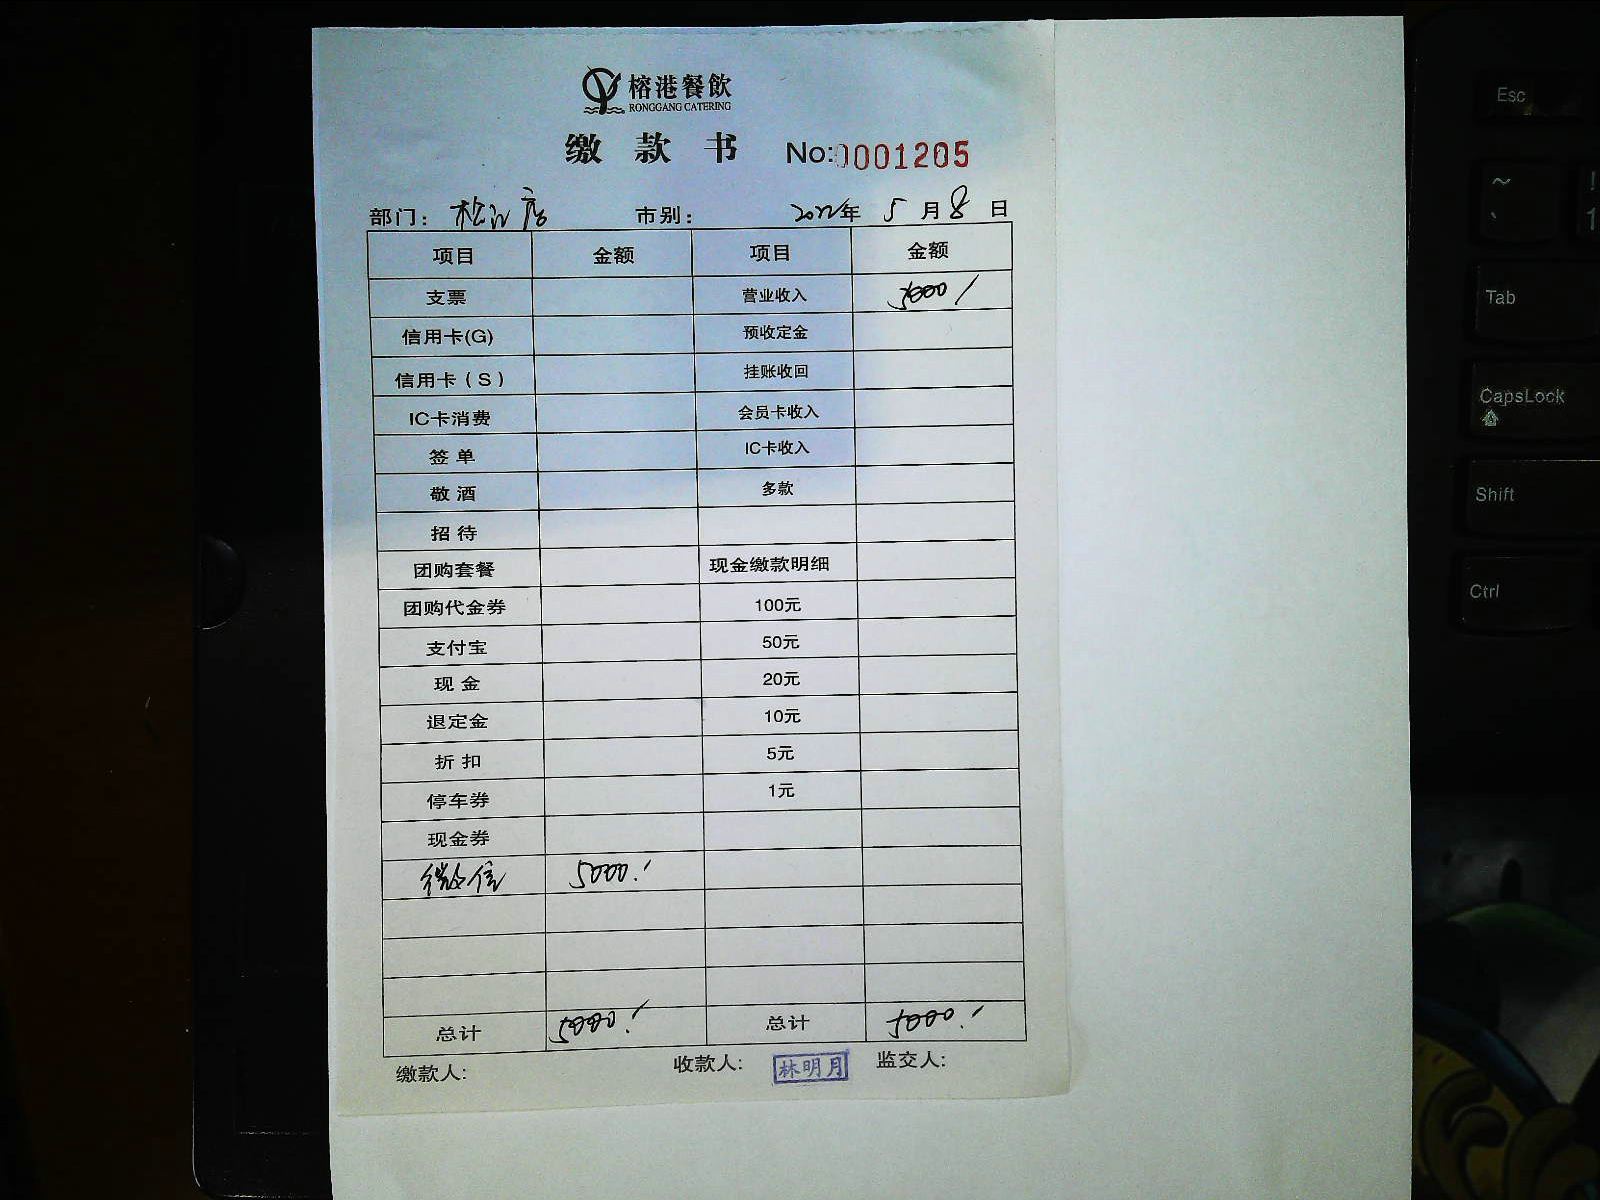 榕港餐飲
RONGGANG CATERING
缴款书 No:0001205
部门: 松江店 市别: 2022年 5月8日
项目 金额 项目 金额
支票 营业收入 5000/
信用卡(G) 预收定金
信用卡(S) 挂账收回
IC卡消费 会员卡收入
签单 IC卡收入
敬酒 多款
招待
团购套餐 现金缴款明细
团购代金券 100元
支付宝 50元
现金 20元
退定金 10元
折扣 5元
停车券 1元
现金券
微信 5000.
总计 5000. 总计 5000.
缴款人: 收款人: 林明月 监交人:
Esc
~
!
1
Tab
CapsLock
Shift
Ctrl